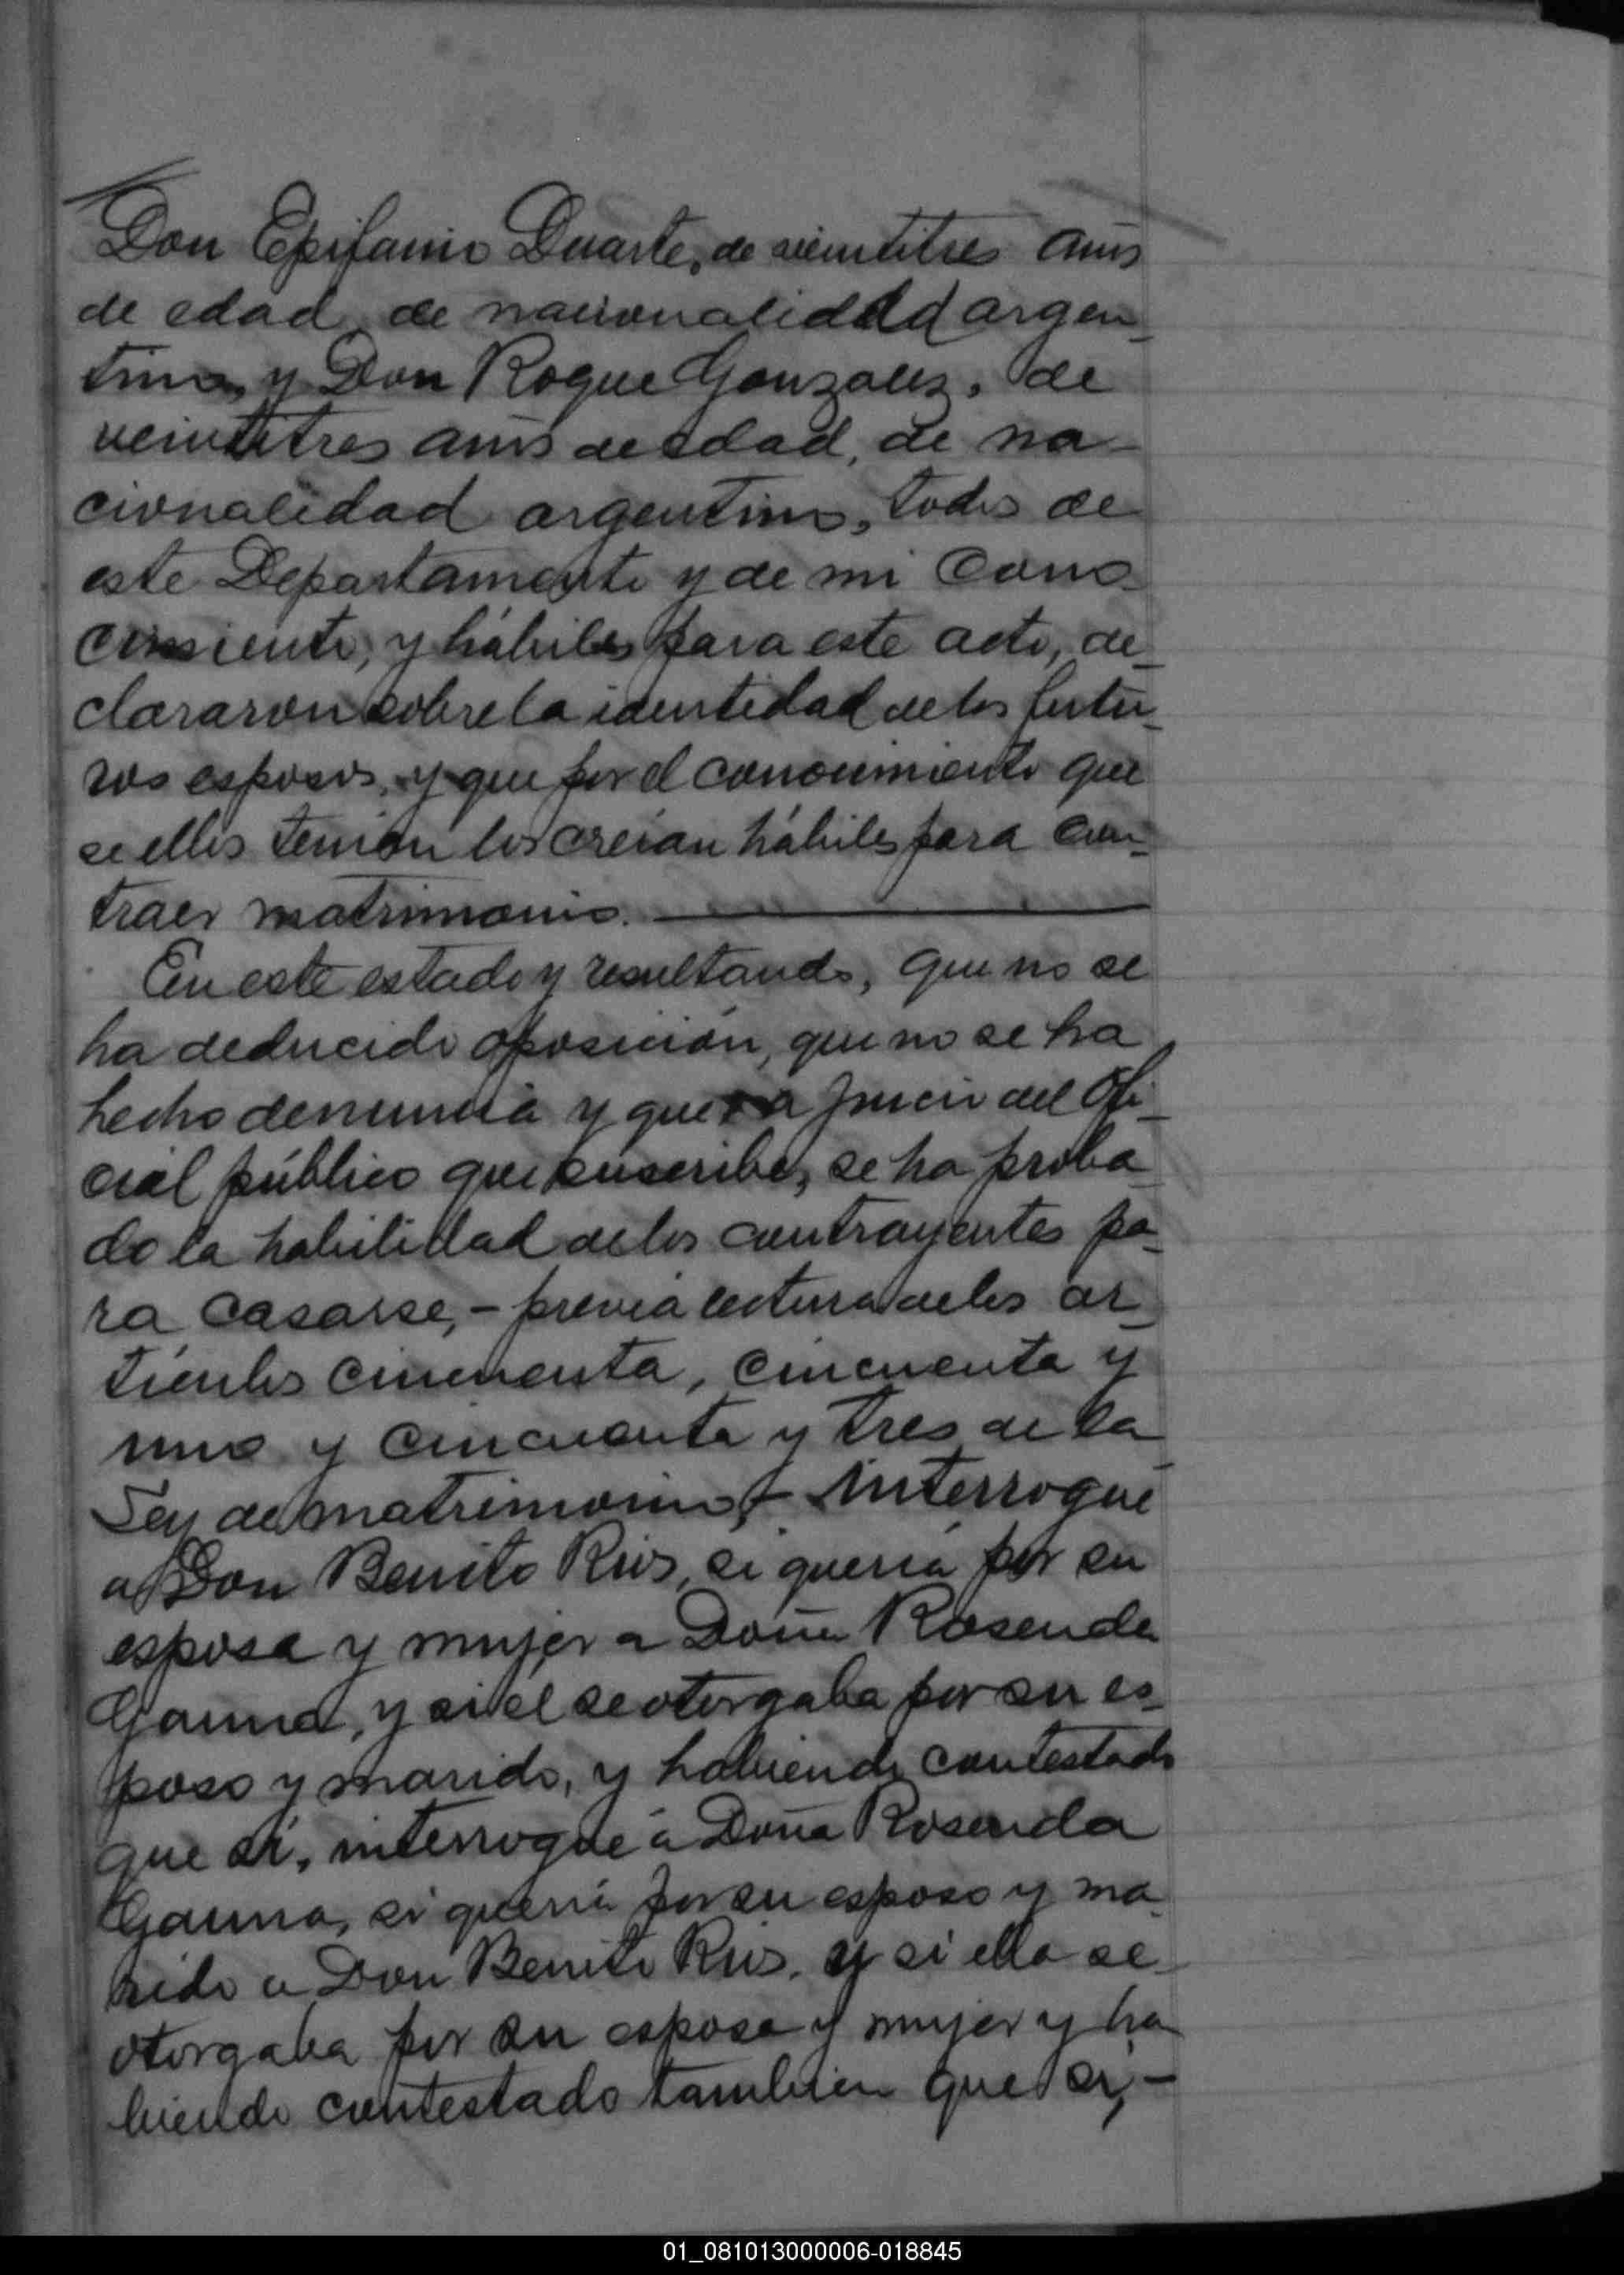 Don Epifanio Duarte, de veintitres años
de edad, de nacionalidad argen-
tina, y Don Roque Gonzalez, de
veintitres años de edad, de na-
cionalidad argentina, todos de
este Departamento y de mi cono-
cimiento, y hábiles para este acto, de-
clararon sobre la identidad de los futu-
ros esposos, y que por el conocimiento que
de ellos tenían los creían hábiles para con-
traer matrimonio.
En este estado y resultando, que no se
ha deducido oposición, que no se ha
hecho denuncia y que a juicio del Ofi-
cial público que suscribe, se ha proba-
do la habilidad de los contrayentes pa-
ra casarse,- previa lectura de los ar-
tículos cincuenta, cincuenta y
uno y cincuenta y tres de la
Ley de matrimonio,- interrogué
a Don Benito Rios, si quería por su
esposa y mujer a Doña Rosenda
Gauna, y si él se otorgaba por su es-
poso y marido, y habiendo contestado
que si, interrogué á Doña Rosenda
Gauna, si quería por su esposo y ma-
rido a Don Benito Rios, y si ella se
otorgaba por su esposa y mujer y ha-
biendo contestado tambien que si,-
01_081013000006-018845